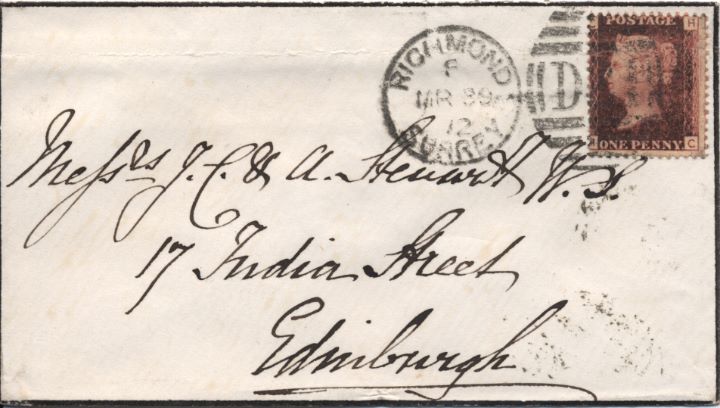 RICHMOND
MR 29
72
SURREY
D
POSTAGE
C H
H C
ONE PENNY
Messrs J. C. & A. Steuart W. S.
17 India Street
Edinburgh